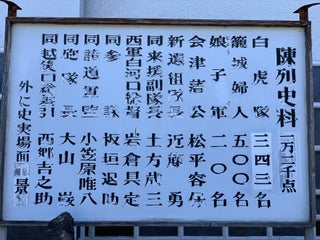 陳列史料 一万二千点
白虎隊 三四三名
籠城婦人 五〇〇名
娘子軍 二〇名
会津藩公 松平容保
新選組隊長 近藤勇
同来援副隊長 土方歳三
西軍白河口総督 岩倉具定
同参謀 板垣退助
同諸道軍監 小笠原唯八
同砲隊長 大山巌
同越後口総参謀 西郷吉之助
外に史実場面 景